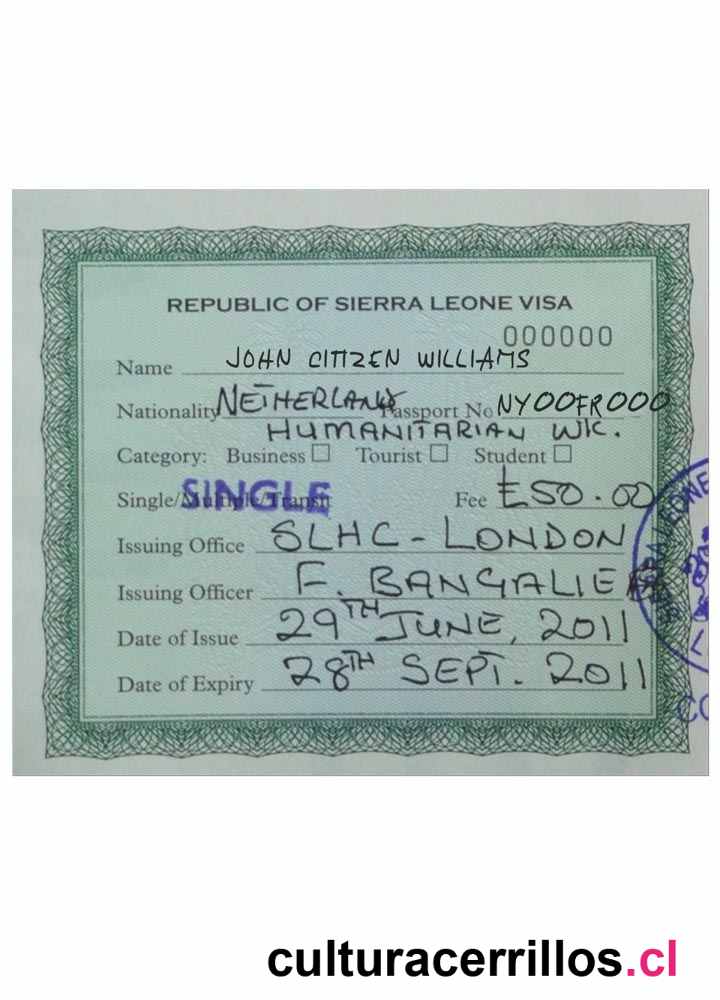 REPUBLIC OF SIERRA LEONE VISA
000000
Name JOHN CITIZEN WILLIAMS
Nationality NETHERLANDS Passport No NY00FR000
HUMANITARIAN WK.
Category: Business Tourist Student
Single/Multiple/Transit SINGLE Fee £50.00
Issuing Office SLHC - LONDON
Issuing Officer F. BANGALIE
Date of Issue 29TH JUNE, 2011
Date of Expiry 28TH SEPT. 2011
culturacerrillos.cl